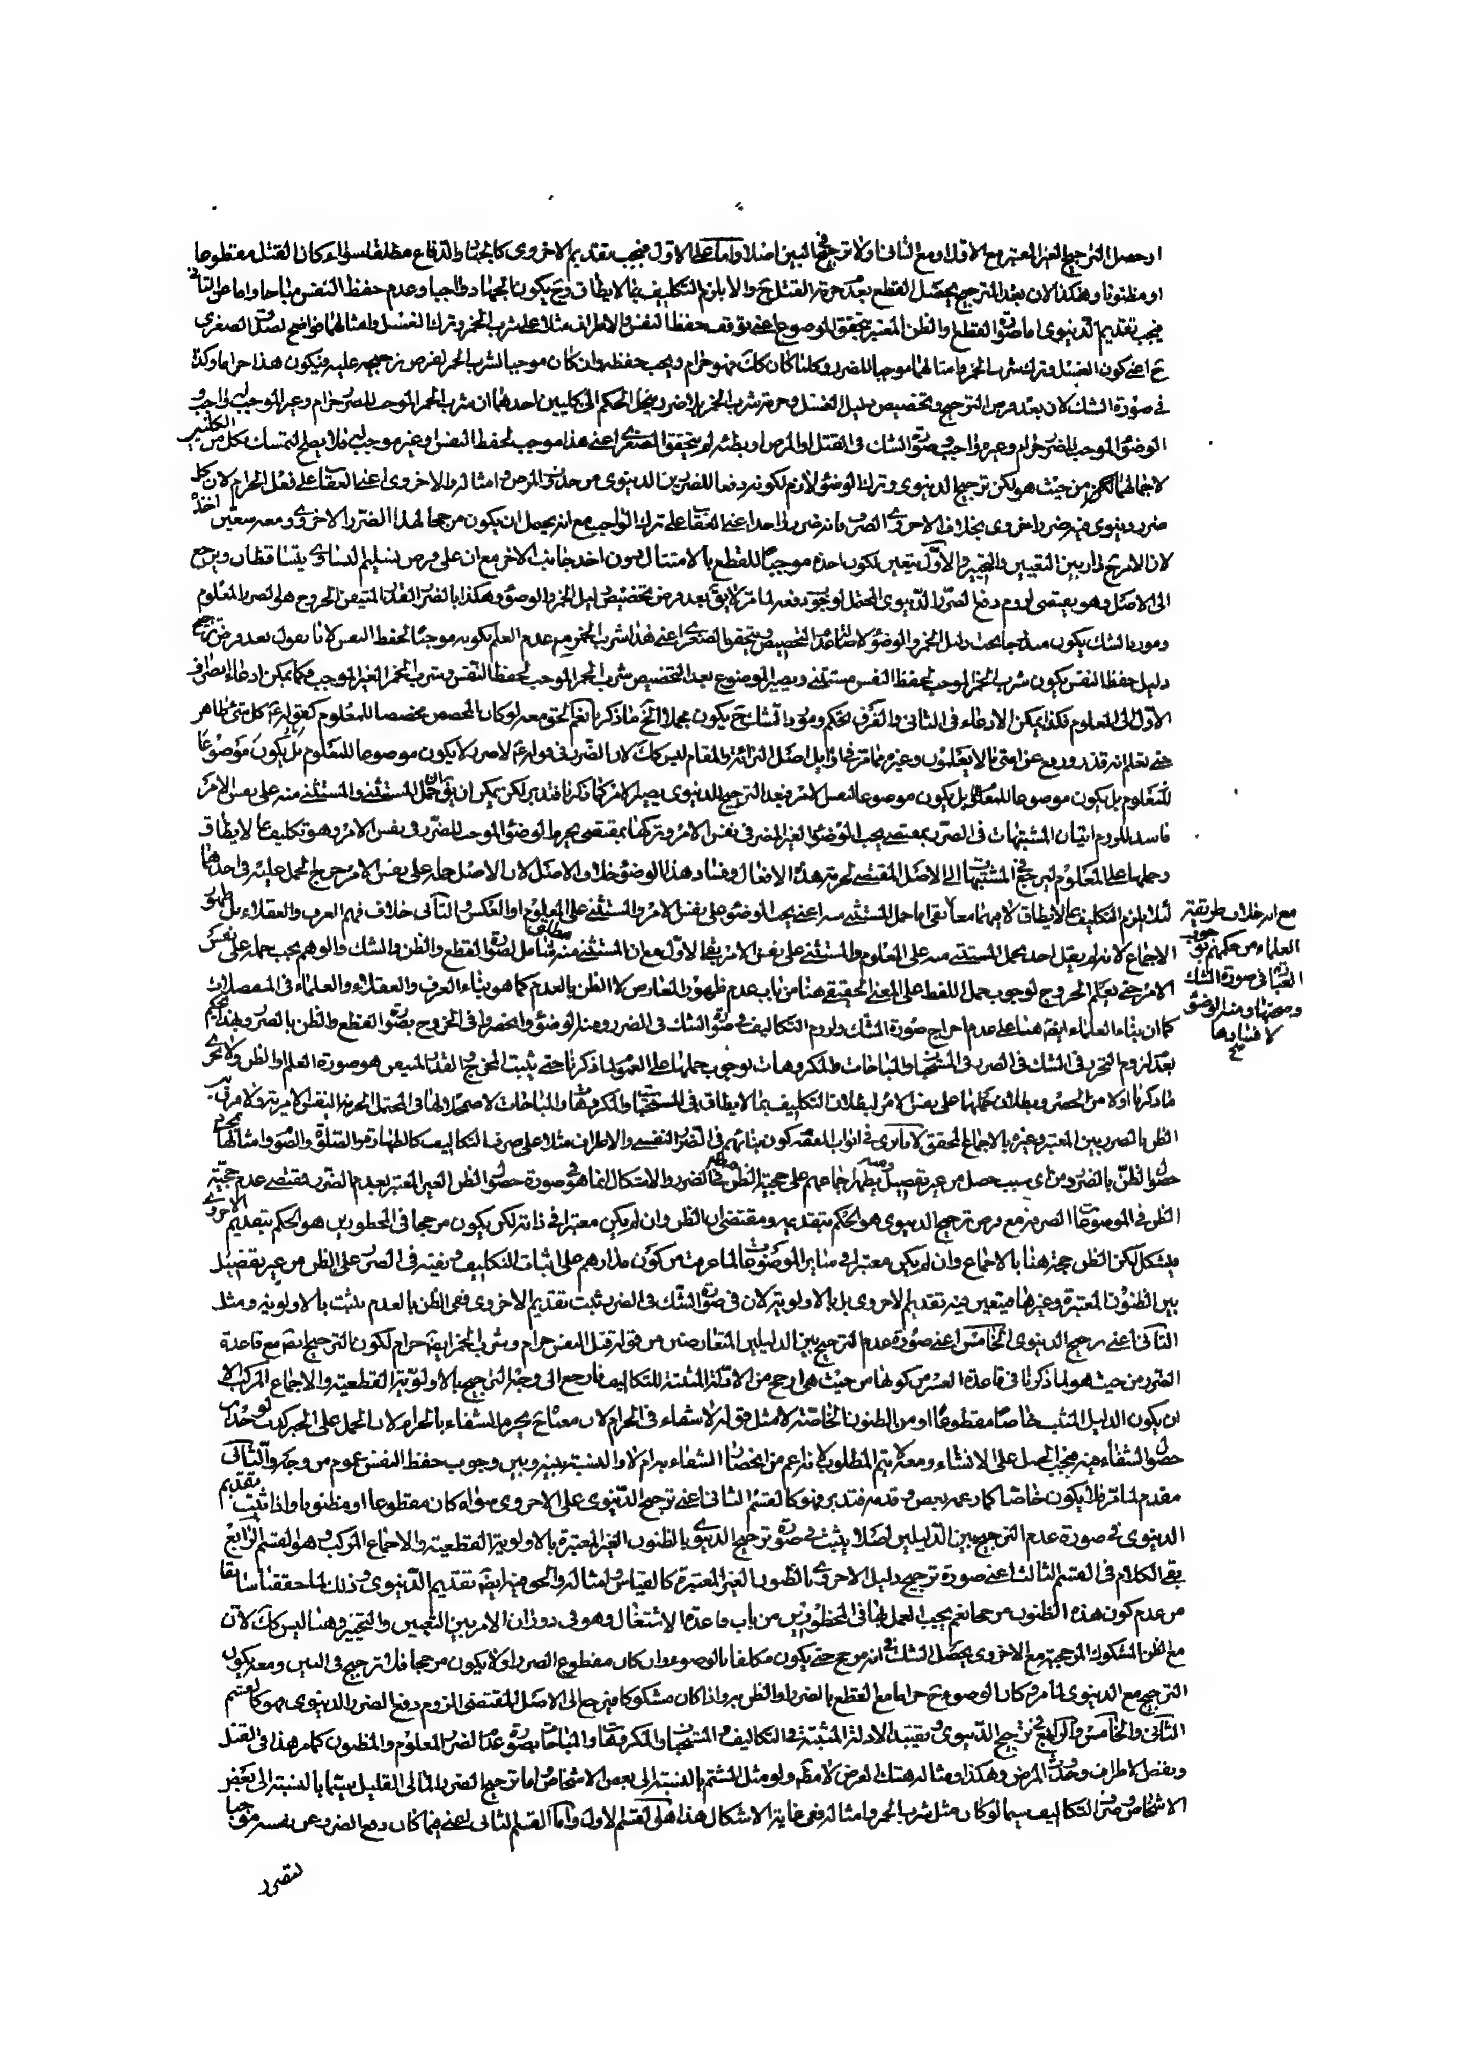 او حصل الترجيح الغير المعتبر مع الاول او مع الثاني او لا ترجيح في البين اصلا واما على الاول فيجب تقديم الاخروي كالجهاد والدفاع مطلقا سواء كان القتل مقطوعا
او مظنونا وهكذا لان بعد الترجيح يحصل القطع بعدم حرمة القتل ح والا يلزم التكليف بما لا يطاق وح يكون الجهاد واجبا وعدم حفظ النفس مباحا واما على الثاني
فيجب تقديم الدنيوي اما صورة القطع والظن المعتبر فيتحقق الموضوع اعني توقف حفظ النفس والاطراف مثلا على شرب الخمر وترك الغسل وامثالهما فواضح لصدق الصغرى
ح اعني كون الغسل وترك شرب الخمر وامثالهما موجبا للضرر وكلما كان كك فهو حرام ويجب حفظه وان كان موجبا لشرب الخمر لفرض ترجيحه عليه فيكون هذا حراما وكذا
في صورة الشك لان بعد فرض الترجيح وتخصيص دليل الغسل وحرمة شرب الخمر بلا ضرر ينحل الحكم الى كليين احدهما ان شرب الخمر الموجب للضرر حرام وغير الموجب ليس واجب و
الوضوء الموجب للضرر حرام وغيره واجب وصورة الشك في القتل او المرض او بطئه لم يتحقق الصغرى اعني هذا موجب لحفظ النفس او غير موجب له فلا يصلح التمسك بكل من الكليتين
لاجمالهما لكن من حيث هو لكن ترجيح الدنيوي وترك الوضوء لازم لكونه دفعا للضررين الدنيوي من حدوث المرض وامثاله والاخروي اعني العقاب على فعل الحرام لان كل
ضرر دنيوي فيه ضرر اخروي بخلاف الاخروي الصرف فانه ضرر واحد اعني العقاب على ترك الواجب مع انه يحتمل ان يكون مرجحا لهذا الضرر الاخروي ومعه يتعين اخذه
لان الامر ح دار بين التعيين والتخيير والاول يتعين لكون اخذه موجبا للقطع بالامتثال دون اخذ جانب الاخر مع ان على فرض تسليم التساوي يتساقطان ويرجع
الى الاصل وهو يقتضي لزوم دفع الضرر الدنيوي المحتمل لوجوب دفعه لما مر لا يق بعد فرض تخصيص دليل الخمر والوضوء وهكذا بالضرر القدر المتيقن الخروج هو الضرر المعلوم
ومورد الشك يكون مندرجا تحت دليل الخمر والوضوء لاصالة عدم التخصيص ويتحقق الصغرى اعني هذا شرب الخمر مع عدم العلم بكونه موجبا لحفظ النفس لانا نقول بعد فرض ترجيح
دليل حفظ النفس يكون شرب الخمر الموجب لحفظ النفس مستثنى ويصير الموضوع بعد التخصيص شرب الخمر الموجب لحفظ النفس وشرب الخمر الغير الموجب فكما يمكن ادعاء انصراف
الاول الى المعلوم فكذا يمكن الادعاء في الثاني والفرق تحكم ومورد الشك ح يكون مجملا الخ ما ذكرنا نعم الحق معه لو كان المخصص مخصصا للمعلوم كقوله ع كل شئ طاهر
حتى تعلم انه قذر ورفع عن امتي ما لا يعلمون وغيره مما مر في اوايل اصل البرائة والمقام ليس كك لان الضرر في قوله ع لا ضرر لا يكون موضوعا للمعلوم بل يكون موضوعا
للمعلوم بل يكون موضوعا للمعلوم بل يكون موضوعا لنفس الامر فبعد الترجيح الدنيوي يصير الامر كما ذكرنا فتدبر لكن يمكن ان يق ان حمل المستثنى والمستثنى منه على نفس الامر
فاسد للزوم اتيان المشتبهات في الضرر بمقتضى يجب الوضوء الغير المضر في نفس الامر وتركها بمقتضى يحرم الوضوء الموجب للضرر في نفس الامر وهو تكليف بما لا يطاق
وحملهما على المعلوم ليرجع في المشتبهات الى الاصل المقتضي لحرمة هذه الافعال وفساد هذا الوضوء خلاف الاصل لان الاصل حمله على نفس الامر خرج الحمل عليه في احدهما
لئلا يلزم التكليف بما لا يطاق لا فيهما معا بقي اما حمل المستثنى منه اعني يجب الوضوء على نفس الامر والمستثنى على المعلوم او العكس والثاني خلاف فهم العرف والعقلاء بل ظهور
الاجماع لانه لم يقل احد بحمل المستثنى منه على المعلوم والمستثنى على نفس الامر بقي الاول مع ان المستثنى منه هنا مطلق شامل لصورة القطع والظن والشك والوهم يجب حمله على نفس
الامر حتى يعلم الخروج لوجوب حمل اللفظ على المعنى الحقيقي هنا من باب عدم ظهور المعارض لا الظن بالعدم كما هو بناء العرف والعقلاء والعلماء في المنفصلات
كما ان بناء العلماء ايضا هنا على عدم اخراج صورة الشك ولزوم التكاليف في صورة الشك في الضرر ومنه الوضوء وانحصروا في الخروج بصورة القطع والظن بالضرر وهذا يحكم
بعد لزوم التحرز في الشك في الضرر في المستحبات والمباحات والمكروهات بوجوب حملهما على العموم لما ذكرنا حتى يثبت المخرج والقدر المتيقن هو صورة العلم والظن ولا يجري
ما ذكرنا اولا من الحصر وبطلان حملهما على نفس الامر لبطلان التكليف بما لا يطاق في المستحبات والمكروهات والمباحات لا صحة لها في المحتمل الحرمة النفس الامرية ولا فرق في
الظن بالضرر بين المعتبر وغيره بالاجماع المحقق لانا نرى في ابواب الفقه كون بنائهم في الضرر النفسي والاطراف مثلا على صرف التكاليف كالطهارة والصلوة والصوم وامثالها بمجرد
حصول الظن بالضرر ومن اي سبب حصل من غير تفصيل ومنه يظهر اجماعهم على حجية الظن مطلقا في الضرر والاشكال انما هو في صورة حصول الظن الغير المعتبر بعدم الضرر فمقتضى عدم حجية
الظن في الموضوعات الصرفة مع فرض ترجيح الدنيوي هو الحكم بتقديمه ومقتضى ان الظن وان لم يكن معتبرا في ذاته لكن يكون مرجحا في المحظورين هو الحكم بتقديم الاخروي
فيشكل لكن الظن حجة هنا بالاجماع وان لم يكن معتبرا في ساير الموضوعات لما عرفت من كون مدارهم على اثبات التكاليف ونفيه في الضرر على الظن من غير تفصيل
بين الظنون المعتبرة وغيرها فيتعين فيه تقديم الاخروي بل بالاولوية لان في صورة الشك في الضرر ثبت تقديم الاخروي ففي الظن بالعدم يثبت بالاولوية ومثل
الثاني اعني ترجيح الدنيوي الخامس اعني صورة عدم الترجيح بين الدليلين المتعارضين من قوله قتل النفس حرام وشرب الخمر ايضا حرام لكون الترجيح ايضا مع قاعدة
الضرر من حيث هو لما ذكرنا في قاعدة العسر من كونها من حيث هي ارجح من الادلة المثبتة للتكاليف فارجع الى وجه الترجيح بالاولوية القطعية والاجماع المركب الا
ان يكون الدليل المثبت خاصا مقطوعا او من الظنون الخاصة لا مثل قوله لا شفاء في الحرام لان معناه ح يحرم الشفاء بالحرام لان الحمل على الخبر كذب لوجدان
حصول الشفاء فيه فيجب الحمل على الانشاء ومعه لا يتم المطلوب لانه اعم من انحصار الشفاء بحرام لا والنسبة بينه وبين وجوب حفظ النفس عموم من وجه والثاني
مقدم لما مر فلا يكون خاصا كما زعمه بعض وقدمه فتدبر فهو كالقسم الثاني اعني ترجيح الدنيوي على الاخروي سواء كان مقطوعا او مظنونا واذا ثبت تقديم
الدنيوي في صورة عدم الترجيح بين الدليلين اصلا يثبت في صورة ترجيح الدنيوي بالظنون الغير المعتبرة بالاولوية القطعية والاجماع المركب وهو القسم الرابع
بقي الكلام في القسم الثالث اعني صورة ترجيح دليل الاخروي بالظنون الغير المعتبرة كالقياس وامثاله والحق فيه ايضا تقديم الدنيوي وذلك لما حققنا سابقا
من عدم كون هذه الظنون مرجحا نعم يجب العمل بها في المحظورين من باب قاعدة الاشتغال وهو في دوران الامر بين التعيين والتخيير وهنا ليس كك لان
مع الظن المشكوك المرجحية مع الاخروي يحصل الشك في انه مرجح حتى يكون مكلفا بالوضوء وان كان مقطوع الضرر او لا يكون مرجحا فلا ترجيح في البين ومعه يكون
الترجيح مع الدنيوي لما مر وكان الوضوء ح حراما مع القطع بالضرر او الظن به واذا كان مشكوكا فيرجع الى الاصل المقتضي للزوم دفع الضرر الدنيوي فهو كالقسم
الثاني والخامس والرابع في ترجيح الدنيوي وتقييد الادلة المثبتة في التكاليف والمستحبات والمكروهات والمباحات بصورة عدم الضرر المعلوم والمظنون كما مر هذا في القتل
ونقص الاطراف وحدوث المرض وهكذا ومثاله هتك العرض لا مطلقا ولو مثل الشتم بالنسبة الى بعض الاشخاص واما ترجيح الضرر المالي القليل سيما بالنسبة الى بعض
الاشخاص وصرف التكاليف سيما لو كان مثل شرب الخمر وامثاله ففي غاية الاشكال هذا هو القسم الاول واما القسم الثاني اعني فيما كان دفع الضرر عن نفسه موجبا
لتضرر
مع انه خلاف طريقة
العلماء من حكمهم بوجوب
العبادة في صورة الشك
وصحتها ومنه الوضوء
لا فسادها
صح